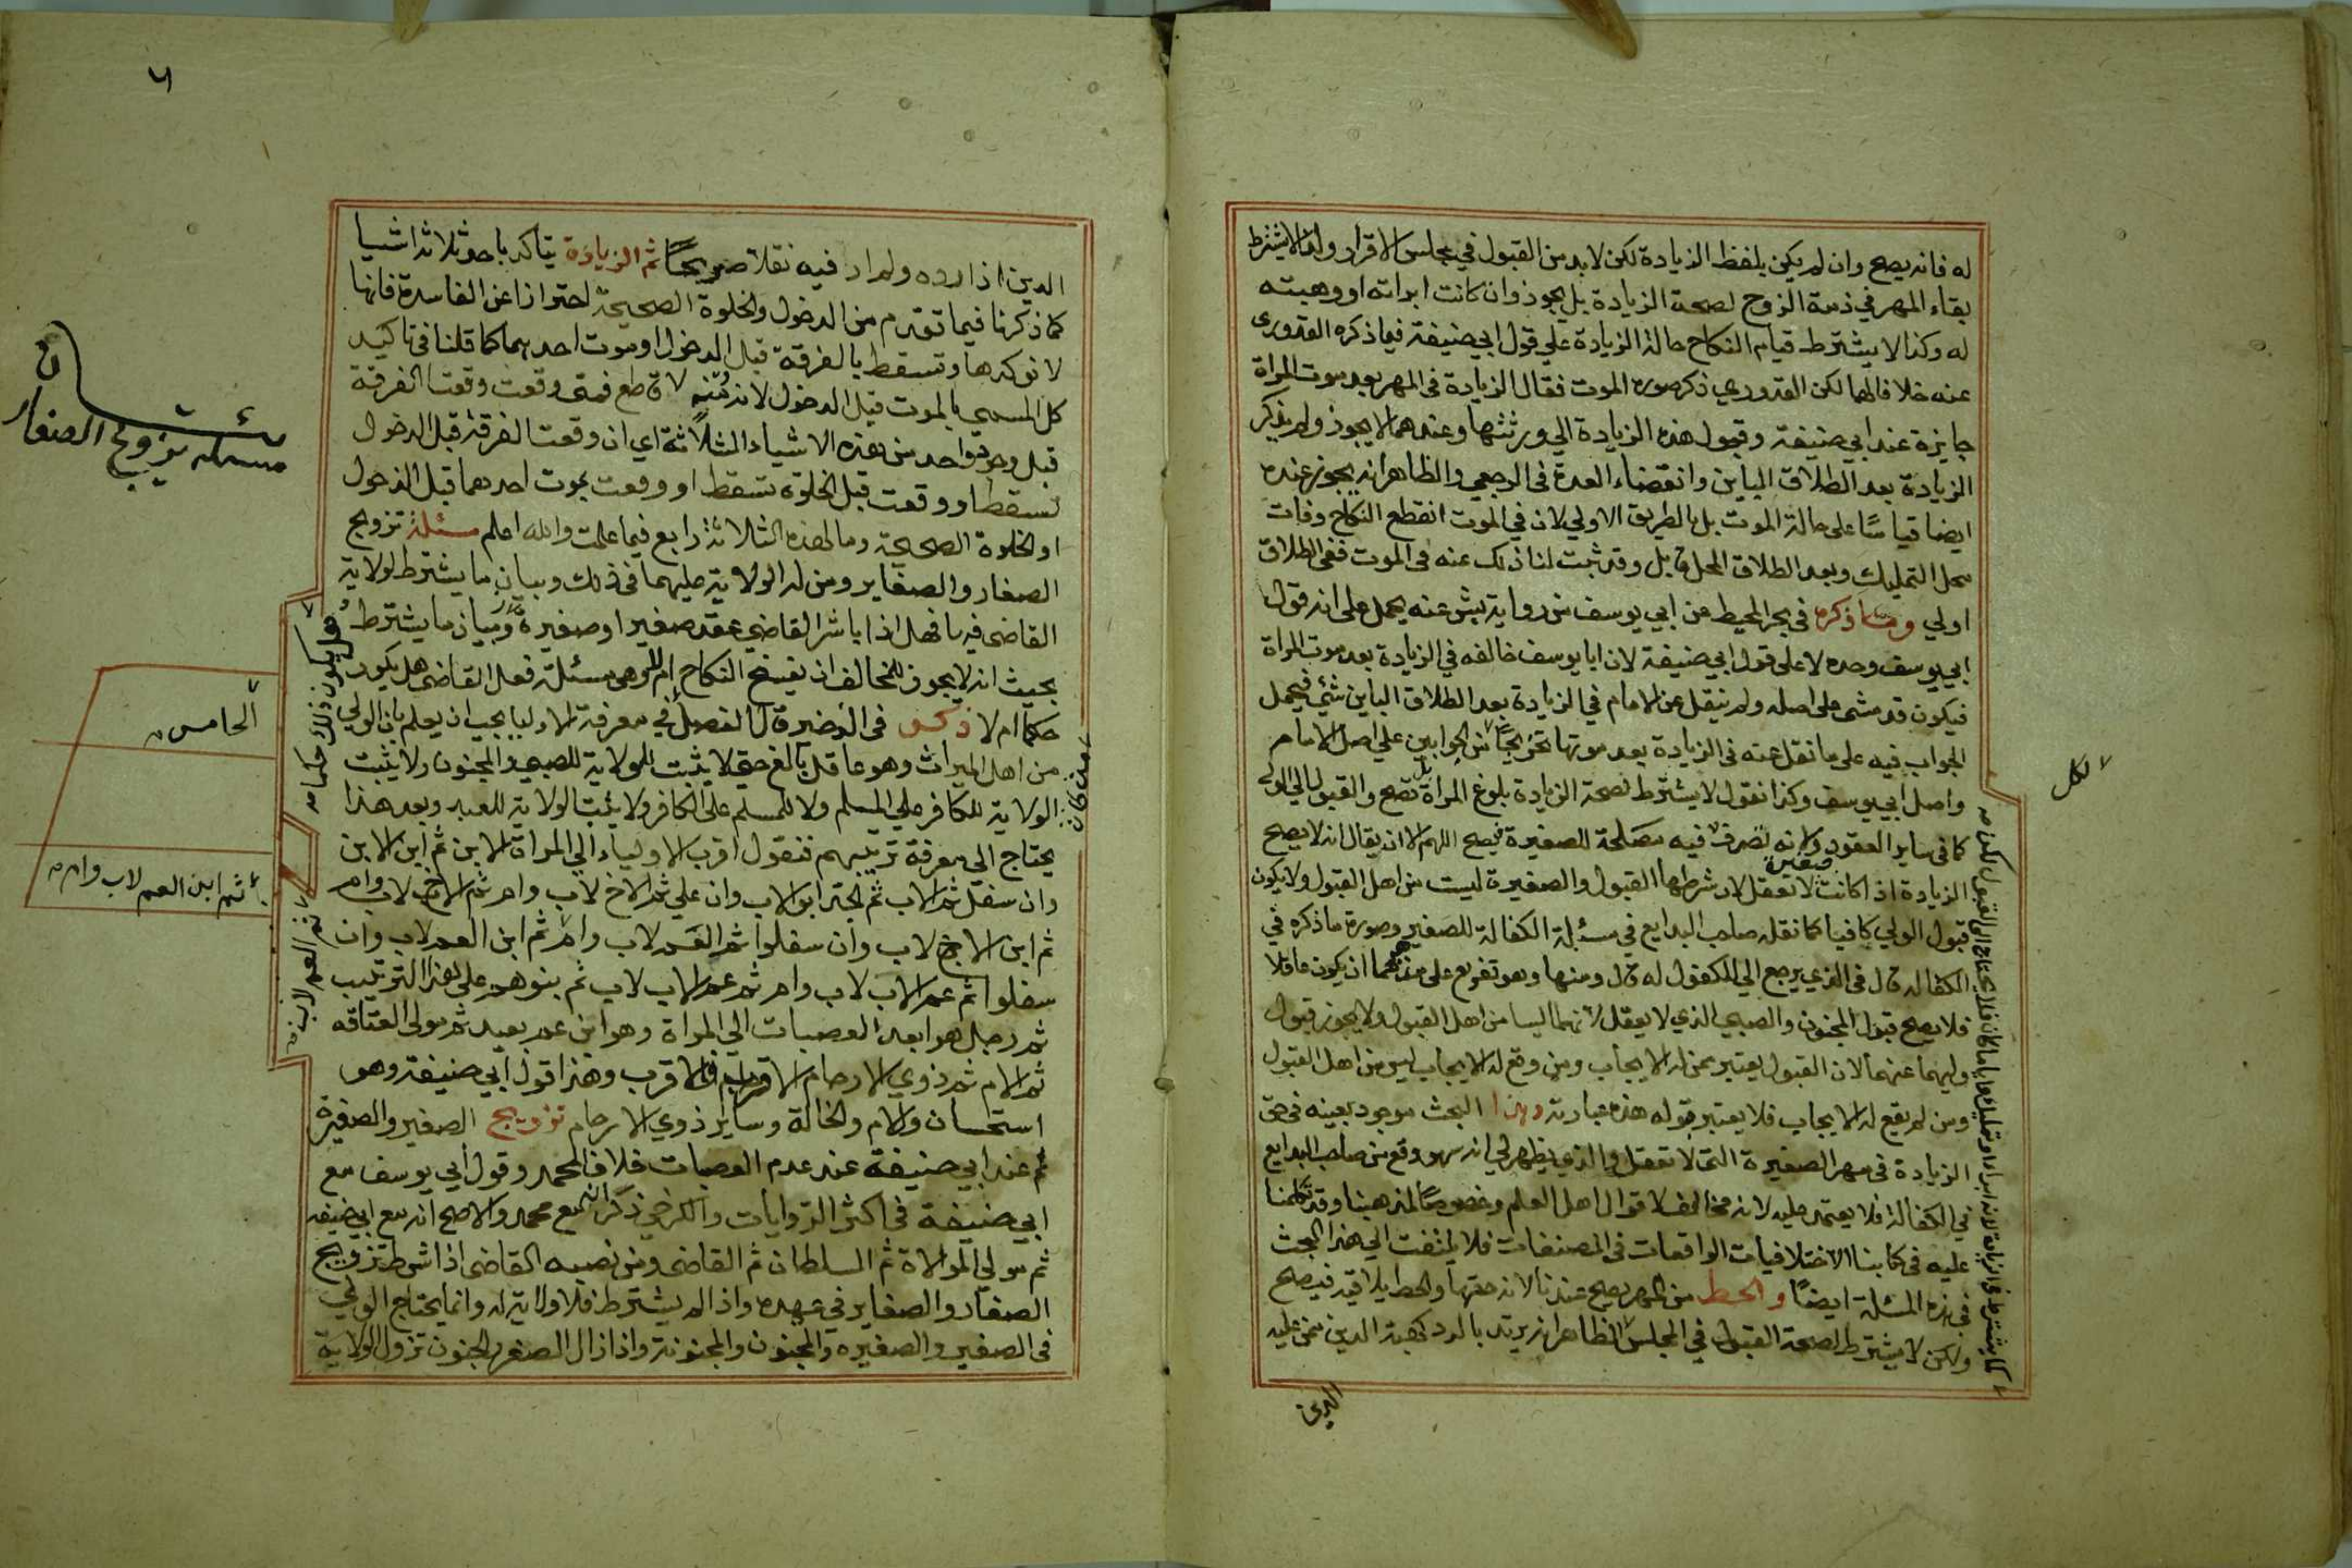 له فانه يصح وان لم يكن بلفظ الزيادة لكن لابد من القبول في مجلس الاقرار ولا يشترط
بقاء المهر في ذمة الزوج لصحة الزيادة بل يجوز وان كانت ابراته او وهبته
له وكذا لا يشترط قيام النكاح حالة الزيادة علي قول ابي حنيفة فيما ذكره القدوري
عنه خلافا لهما لكن القدوري ذكر صوره الموت فقال الزيادة في المهر بعد موت المراة
جايزة عند ابي حنيفة وقبول هذه الزيادة الي ورثتها وعندهما لا يجوز ولم يذكر
الزيادة بعد الطلاق الباين وانقضاء العدة في الرجعي والظاهر انه يجوز عنده
ايضا قياسًا على حالة الموت بل بالطريق الاولي لان في الموت انقطع النكاح وفات
محل التمليك وبعد الطلاق المحل قابل وقد ثبت لنا ذلك عنه في الموت ففي الطلاق
اولي وما ذكره في بحر المحيط عن ابي يوسف من رواية بشر عنه يحمل على انه قول
ابي يوسف وحده لا على قول ابي حنيفة لان ابا يوسف خالفه في الزيادة بعد موت المراة
فيكون قد مشى على اصله ولم ينقل عن الامام في الزيادة بعد الطلاق الباين شئ فيحمل
الجواب فيه على ما نقل عنه في الزيادة بعد موتها تخريجًا من الجوابين علي اصل الامام
واصل ابي يوسف وكذا نقول لا يشترط لصحة الزيادة بلوغ المراة بل تصح والقبول الي الولي
كما في ساير العقود ولانه تصرف فيه مصلحة للصغيرة فيصح اللهم الا ان يقال انه لا يصح
الزيادة اذا كانت صغيرة لا تعقل لان شرطها القبول والصغيرة ليست من اهل القبول ولا يكون
قبول الولي كافيا كما نقله صاحب البدايع في مسئلة الكفالة للصغير وصورة ما ذكره في
الكفالة قال في الذي يرجع الي المكفول له قال ومنها وهو تفريع على مذهبهما ان يكون عاقلا
فلا يصح قبول المجنون والصبي الذي لا يعقل لانهما ليسا من اهل القبول ولا يجوز قبول
وليهما عنهما لان القبول يعتبر ممن له الايجاب ومن وقع له الايجاب ليس من اهل القبول
ومن لم يقع له الايجاب فلا يعتبر قوله هذه عبارته وهذا البحث موجود بعينه في حق
الزيادة في مهر الصغيرة التي لا تعقل والذي يظهر لي انه سهو وقع من صاحب البدايع
في الكفالة فلا يعتمد عليه لانه مخالف لاقوال اهل العلم وخصوصًا لمذهبنا وقد تكلمنا
عليه في كتابنا الاختلافيات الواقعات في المصنفات فلا يلتفت الي هذا البحث
في هذه المسئلة ايضًا والحط من المهر يصح عندنا لانه حقها والحط يلاقيه فيصح
ولكن لا يشترط لصحة القبول في المجلس الظاهر انه يرتد بالرد كهبة الدين ممن عليه
الدين
لكل
٦
الدين اذا رده ولم ار فيه نقلا صريحًا ثم الزيادة يتاكد باحد ثلاثة اشيا
كما ذكرنا فيما تقدم من الدخول والخلوة الصحيحة احترازا عن الفاسدة فانها
لا توكدها وتسقط بالفرقة قبل الدخول او موت احدهما كما قلنا في تاكيد
كل المسمى بالموت قبل الدخول لانه قاطع فمتى وقعت وقعت الفرقة
قبل وجود واحد من هذه الاشياء الثلاثة اي ان وقعت الفرقة قبل الدخول
تسقط او وقعت قبل الخلوة تسقط او وقعت بموت احدهما قبل الدخول
او الخلوة الصحيحة وما لهذه الثلاثة رابع فيما علمت والله اعلم مسئلة تزويج
الصغار والصغاير ومن له الولاية عليهما في ذلك وبيان ما يشترط لولاية
القاضي فيها وهل اذا باشر القاضي عقد صغير او صغيره وبيان ما يشترط
بحيث انه لا يجوز للمخالف ان يفسخ النكاح ام لا وهي مسئلة فعل القاضي هل يكون
حكمًا ام لا ذكر في الذخيرة قال الفصل في معرفة الاوليا يجب ان يعلم بان الولي
من اهل الميراث وهو عاقل بالغ حتى لا يثبت الولاية للصبي والمجنون ولا يثبت
الولاية للكافر علي المسلم ولا للمسلم علي الكافر ولا يثبت الولاية للعبد وبعد هذا
يحتاج الي معرفة ترتيبهم فنقول اقرب الاولياء الي المراة الابن ثم ابن الابن
وان سفل ثم الاب ثم الجد ابو الاب وان علي ثم الاخ لاب وام ثم الاخ لاب
ثم ابن الاخ لاب وان سفلوا ثم العم لاب وام ثم ابن العم لاب وان
سفلوا ثم عم الاب لاب وام ثم عم الاب لاب ثم بنوهم علي هذا الترتيب
ثم رجل هو ابعد العصبات الي المراة وهو ابن عم بعيد ثم مولى العتاقه
ثم الام ثم ذوي الارحام الاقرب فالاقرب وهذا قول ابي حنيفة وهو
استحسان والام والخالة وساير ذوي الارحام تزويج الصغير والصغيرة
ثم عند ابي حنيفة عند عدم العصبات خلافا لمحمد وقول ابي يوسف مع
ابي حنيفة في اكثر الروايات والكرخي ذكر انه مع محمد والاصح انه مع ابي حنيفه
ثم مولي الموالاة ثم السلطان ثم القاضي ومن نصبه القاضي اذا شرط تزويج
الصغار والصغاير في عهده واذا لم يشترط فلا ولاية له وانما يحتاج الولي
في الصغير والصغيره والمجنون والمجنونة واذا زال الصغر والجنون تزول الولاية
مسئلة تزويج الصغار
الخامس
ثم ابن العم لاب وام